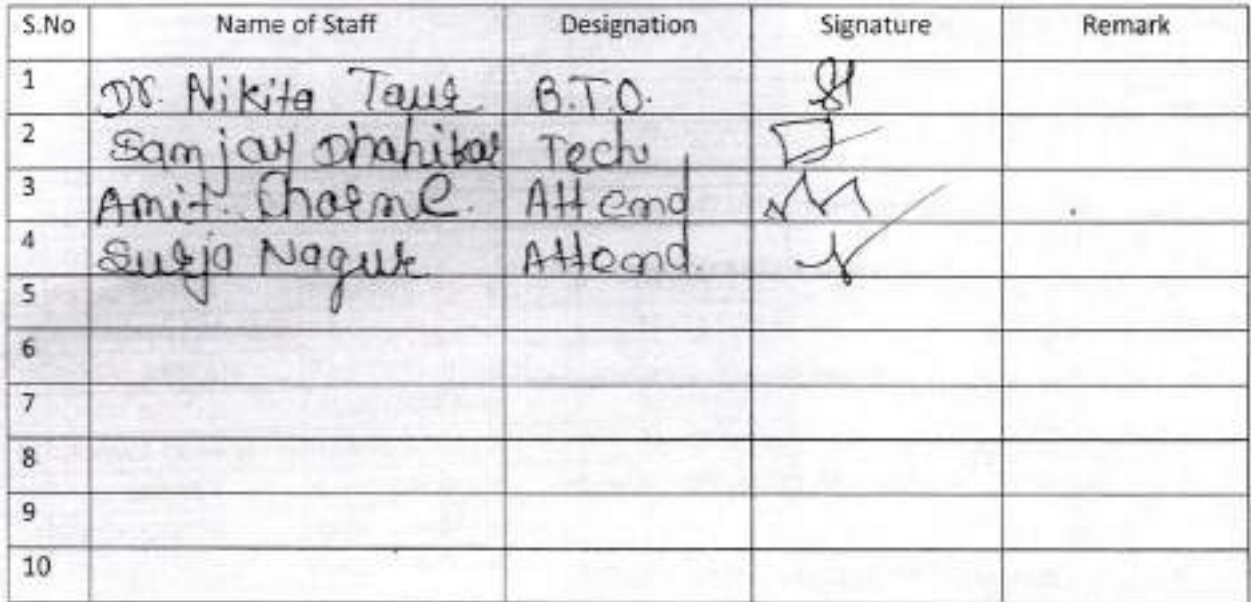 S.No Name of Staff Designation Signature Remark
1 Dr. Nikita Taur B.T.O.
2 Samjay Dhahikar Tech
3 Amit. Charne. Attend
4 Attend.
5
6
7
8
9
10